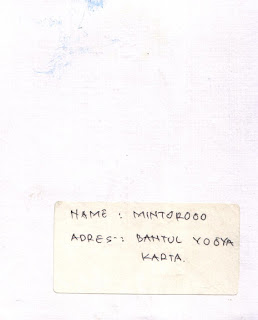 NAME : MINTOROGO
ADRES : BANTUL YOGYA
KARTA.